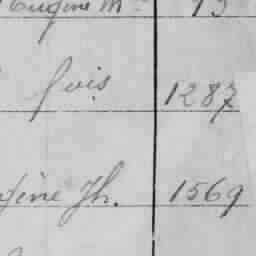 Eugène M
fois 1287
gène Jh. 1569